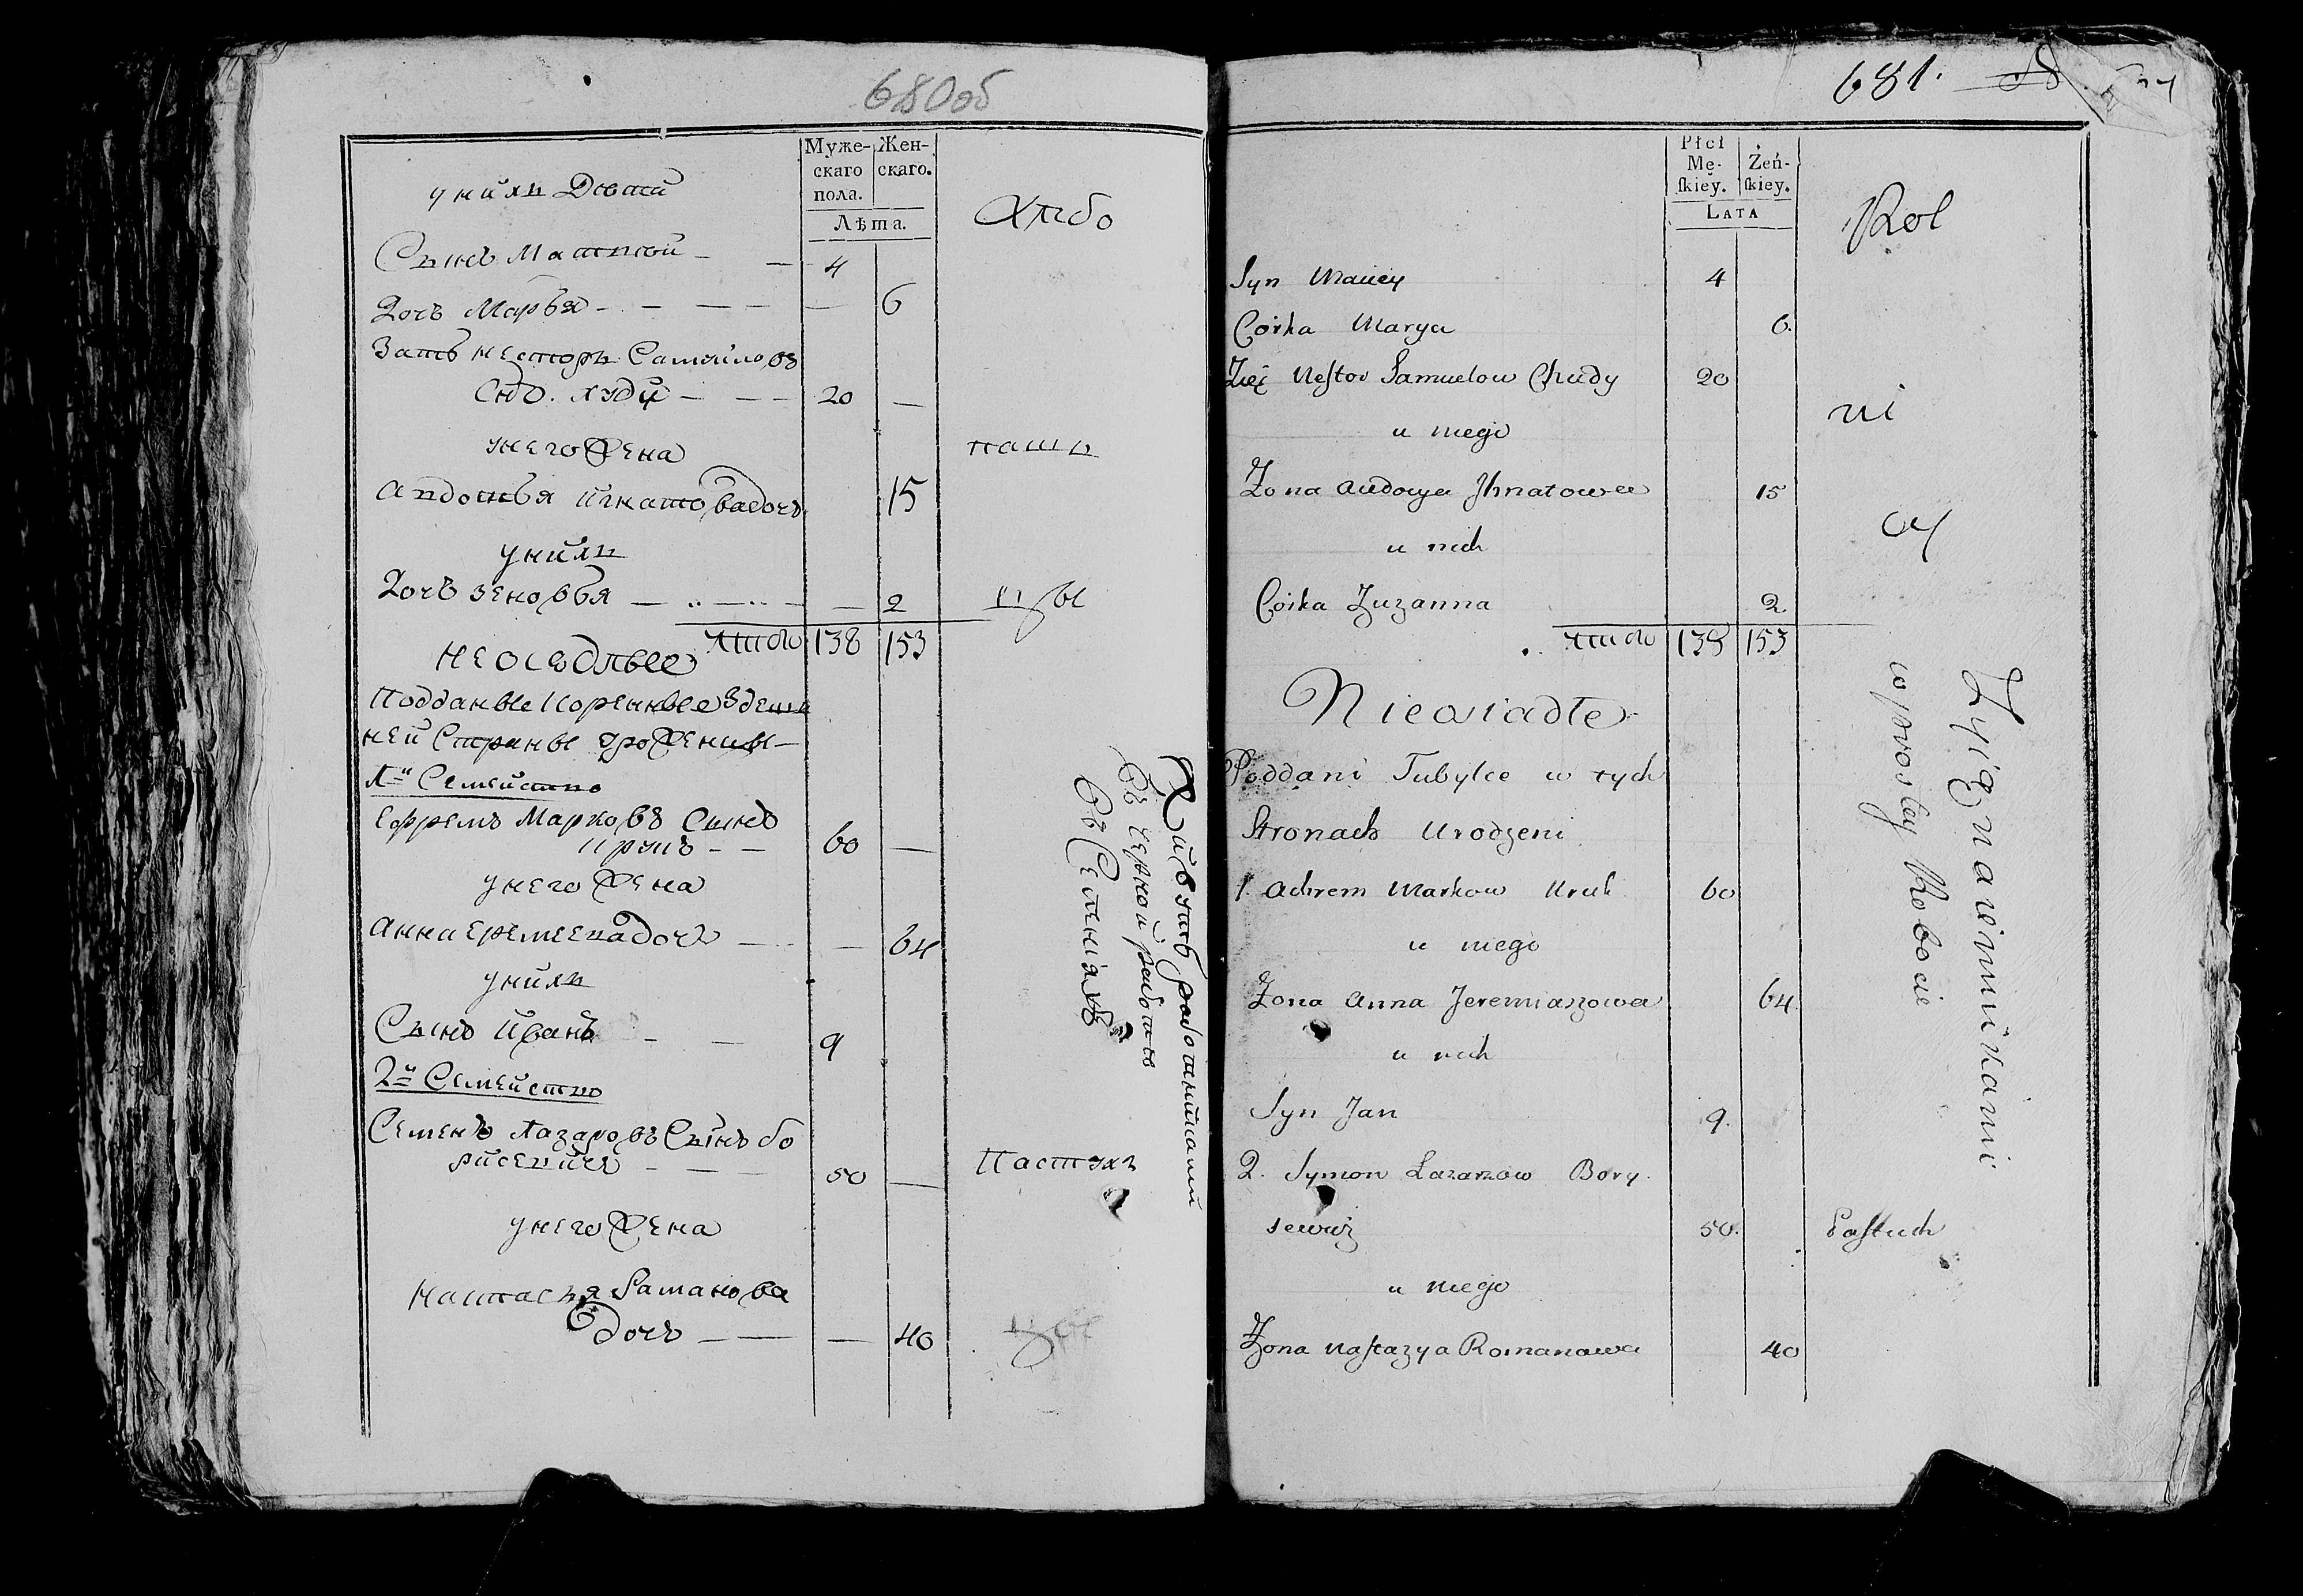 680об
Муже-
скаго
пола.
Жен-
скаго.
Лѣта.
у нихъ Дѣти
Хлѣбо
Сынъ Матвѣй 4
Дочь Марья 6
Зять Несторъ Самуйловъ
Снъ. Худы 20
у него Жена
паш
Авдотья Игнатова дочь 15
у нихъ
Дочь Зеновья 2
цы
138 153
Неоседлые
Подданые Коренные Здеш
ней Страны урожени
1й Семейство
Ефремъ Марковъ Сынъ
Крукъ 60
у него Жена
Анна Еремеева дочь 64
у нихъ
Сынъ Иванъ 9
2й Семейство
Семенъ Лазаровъ Сынъ Бо
рисевичъ 50
Пастухъ
у него Жена
Настасья Раманова
дочь 40
въ черной работѣ
681.
Płci
Mę-
skiey.
Żeń-
skiey.
LATA
Rol
Syn Maciey 4
Corka Marya 6.
Zięć Nestor Samuelow Chudy 20
ni
u niego
Żona Audocya Ihnatowa 15
cy
u nich
Corka Zuzanna 2.
138 153
Nieosiadłe
Poddani Tubylce w tych
Stronach Urodzeni
1. Achrem Markow Kruk 60
u niego
Żona Anna Jeremiaszowa 64.
u nich
Syn Jan 9.
2. Symon Lazarzow Bory.
sewicz 50.
Pastuch
u niego
Żona Nastazya Romanowa 40
Żyią naiemnikami
w prostey Robocie